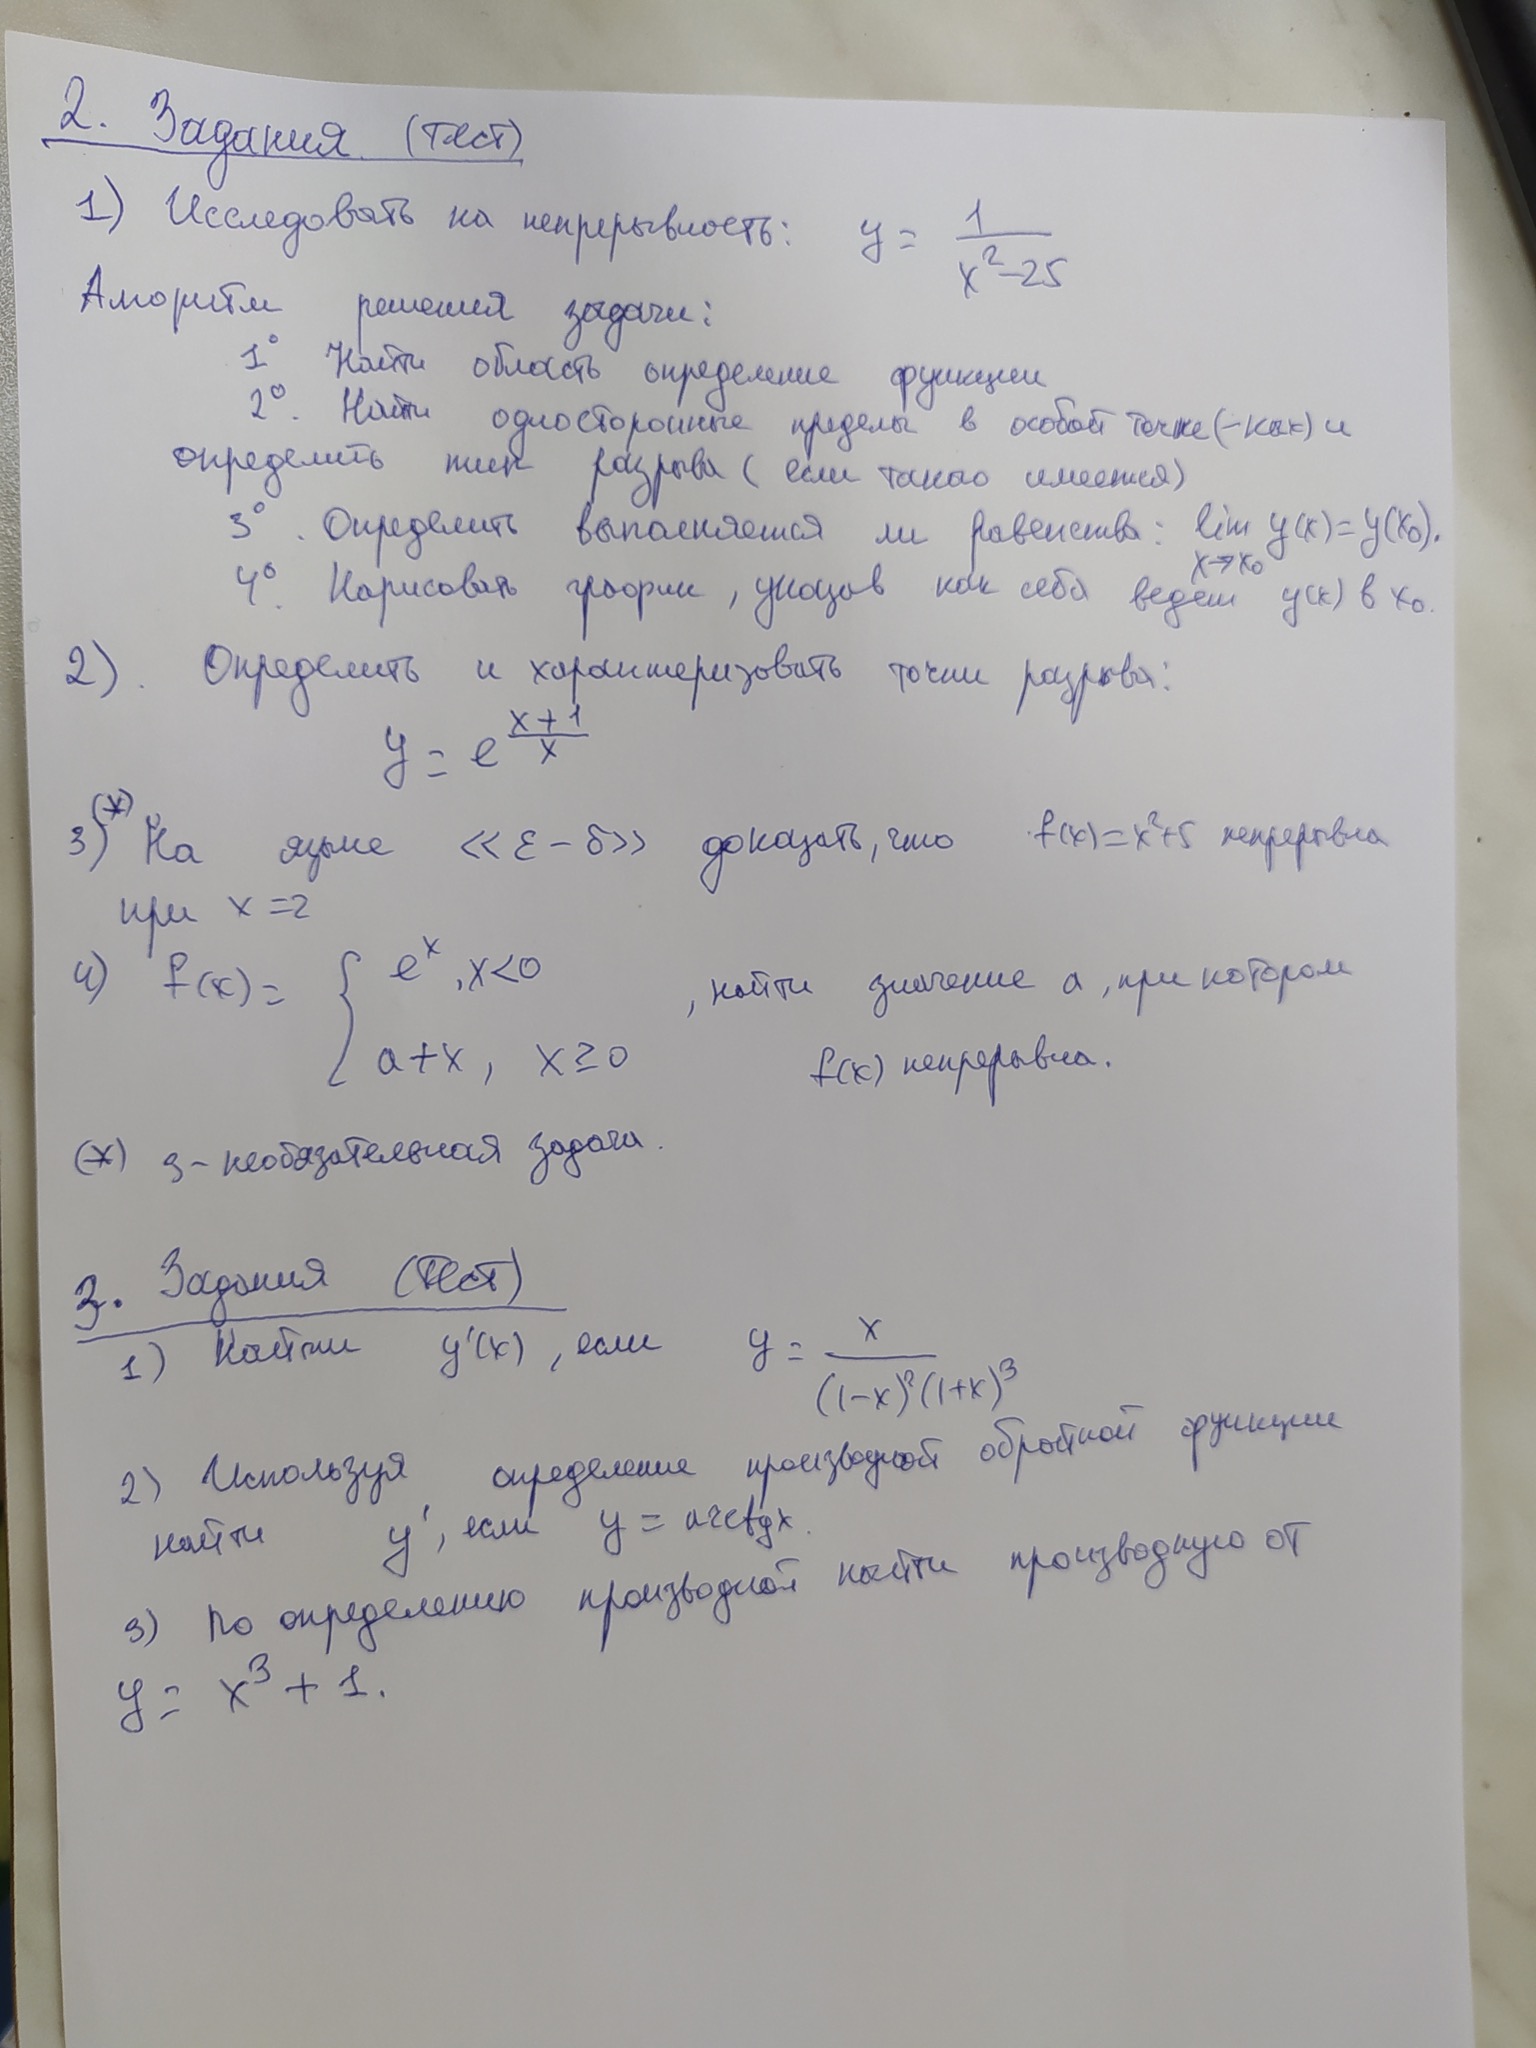 2. Задания (тест)
1) Исследовать на непрерывность: y = 1/(x²-25)
Алгоритм решения задачи:
1° Найти область определение функции
2°. Найти односторонные пределы в особой точке(-ках) и
определить тип разрыва (если такао имеется)
3°. Определить выполняется ли равенства: lim y(x)=y(x₀).
x→x₀
4°. Нарисовать график, указав как себя ведет y(x) в x₀.
2). Определить и характеризовать точки разрыва:
y = e^((x+1)/x)
3)(*) На языке <<ε-δ>> доказать, что f(x)=x²+5 непрерывна
при x=2
4) f(x) = { e^x, x<0 , найти значение a, при котором
a+x, x≥0 f(x) непрерывна.
(*) 3-необязательная задача.
3. Задания (Тест)
1) Найти y'(x), если y = x/((1-x)²(1+x)³)
2) Используя определение производной обратной функции
найти y', если y = arctgx.
3) По определению производной найти производную от
y = x³ + 1.